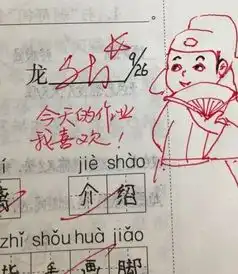 龙 9/26
今天的作业
我喜欢！
jiè shào
介 绍
zhǐ shǒu huà jiǎo
手 画 脚